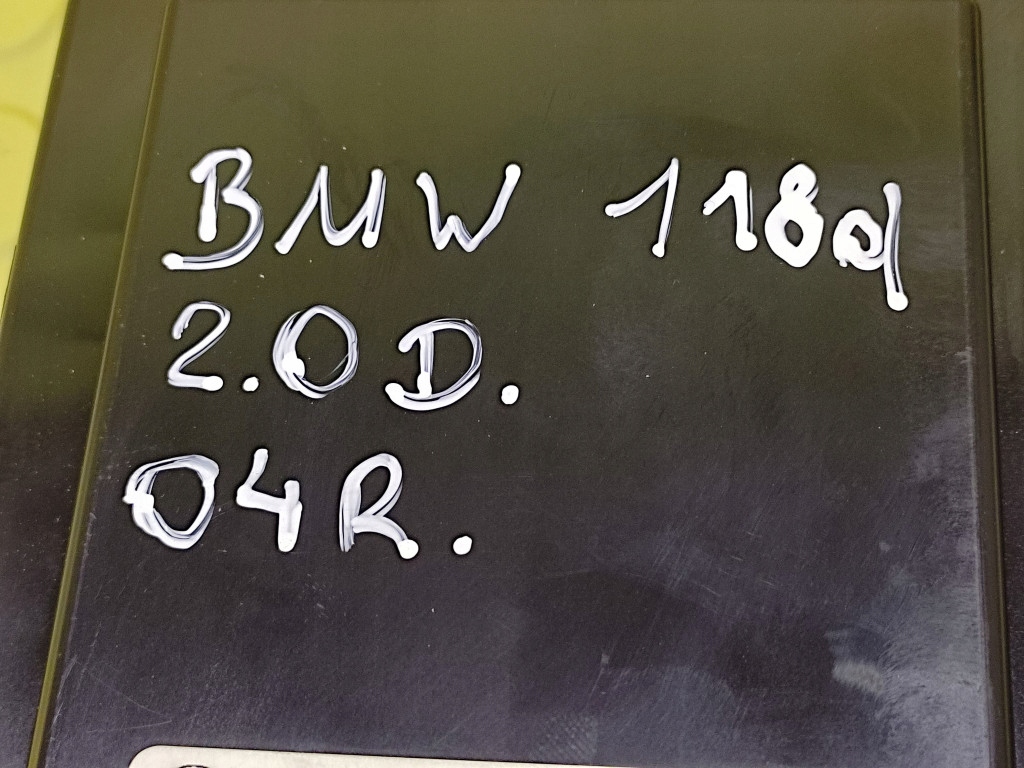 BMW 118d
2.0 D.
04R.